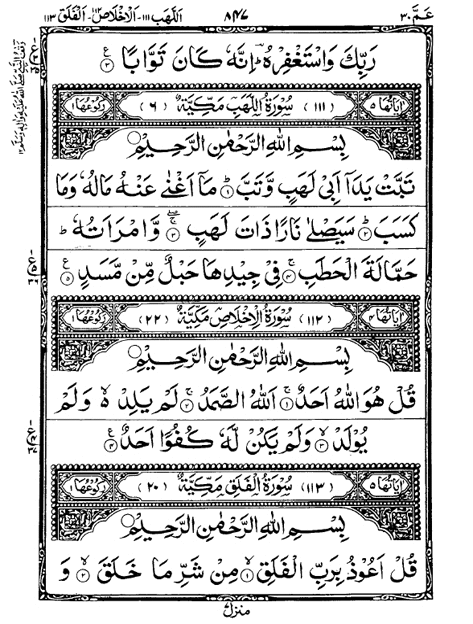 عم ٣٠ ٨٤٧ اللهب ١١١- الاخلاص ١١٢- الفلق ١١٣
رَبِّكَ وَاسْتَغْفِرْهُ ؕ اِنَّهٗ كَانَ تَوَّابًا ۠ ﴿۳﴾
اٰيَاتُهَا ٥ (١١١) سُوْرَةُ اللَّهَبِ مَكِّيَّةٌ (٦) رُكُوْعُهَا ١
بِسْمِ اللّٰهِ الرَّحْمٰنِ الرَّحِيْمِ
تَبَّتْ يَدَاۤ اَبِىْ لَهَبٍ وَّتَبَّ ؕ ﴿۱﴾ مَاۤ اَغْنٰى عَنْهُ مَالُهٗ وَمَا
كَسَبَ ؕ ﴿۲﴾ سَيَصْلٰى نَارًا ذَاتَ لَهَبٍ ۚۖ ﴿۳﴾ وَّامْرَاَتُهٗ ؕ
حَمَّالَةَ الْحَطَبِ ۚ ﴿۴﴾ فِىْ جِيْدِهَا حَبْلٌ مِّنْ مَّسَدٍ ۠ ﴿۵﴾
اٰيَاتُهَا ٤ (١١٢) سُوْرَةُ الْاِخْلَاصِ مَكِّيَّةٌ (٢٢) رُكُوْعُهَا ١
بِسْمِ اللّٰهِ الرَّحْمٰنِ الرَّحِيْمِ
قُلْ هُوَ اللّٰهُ اَحَدٌ ۚ ﴿۱﴾ اَللّٰهُ الصَّمَدُ ۚ ﴿۲﴾ لَمْ يَلِدْ ۙ وَلَمْ
يُوْلَدْ ۙ ﴿۳﴾ وَلَمْ يَكُنْ لَّهٗ كُفُوًا اَحَدٌ ۠ ﴿۴﴾
اٰيَاتُهَا ٥ (١١٣) سُوْرَةُ الْفَلَقِ مَكِّيَّةٌ (٢٠) رُكُوْعُهَا ١
بِسْمِ اللّٰهِ الرَّحْمٰنِ الرَّحِيْمِ
قُلْ اَعُوْذُ بِرَبِّ الْفَلَقِ ۙ ﴿۱﴾ مِنْ شَرِّ مَا خَلَقَ ۙ ﴿۲﴾ وَ
منزل